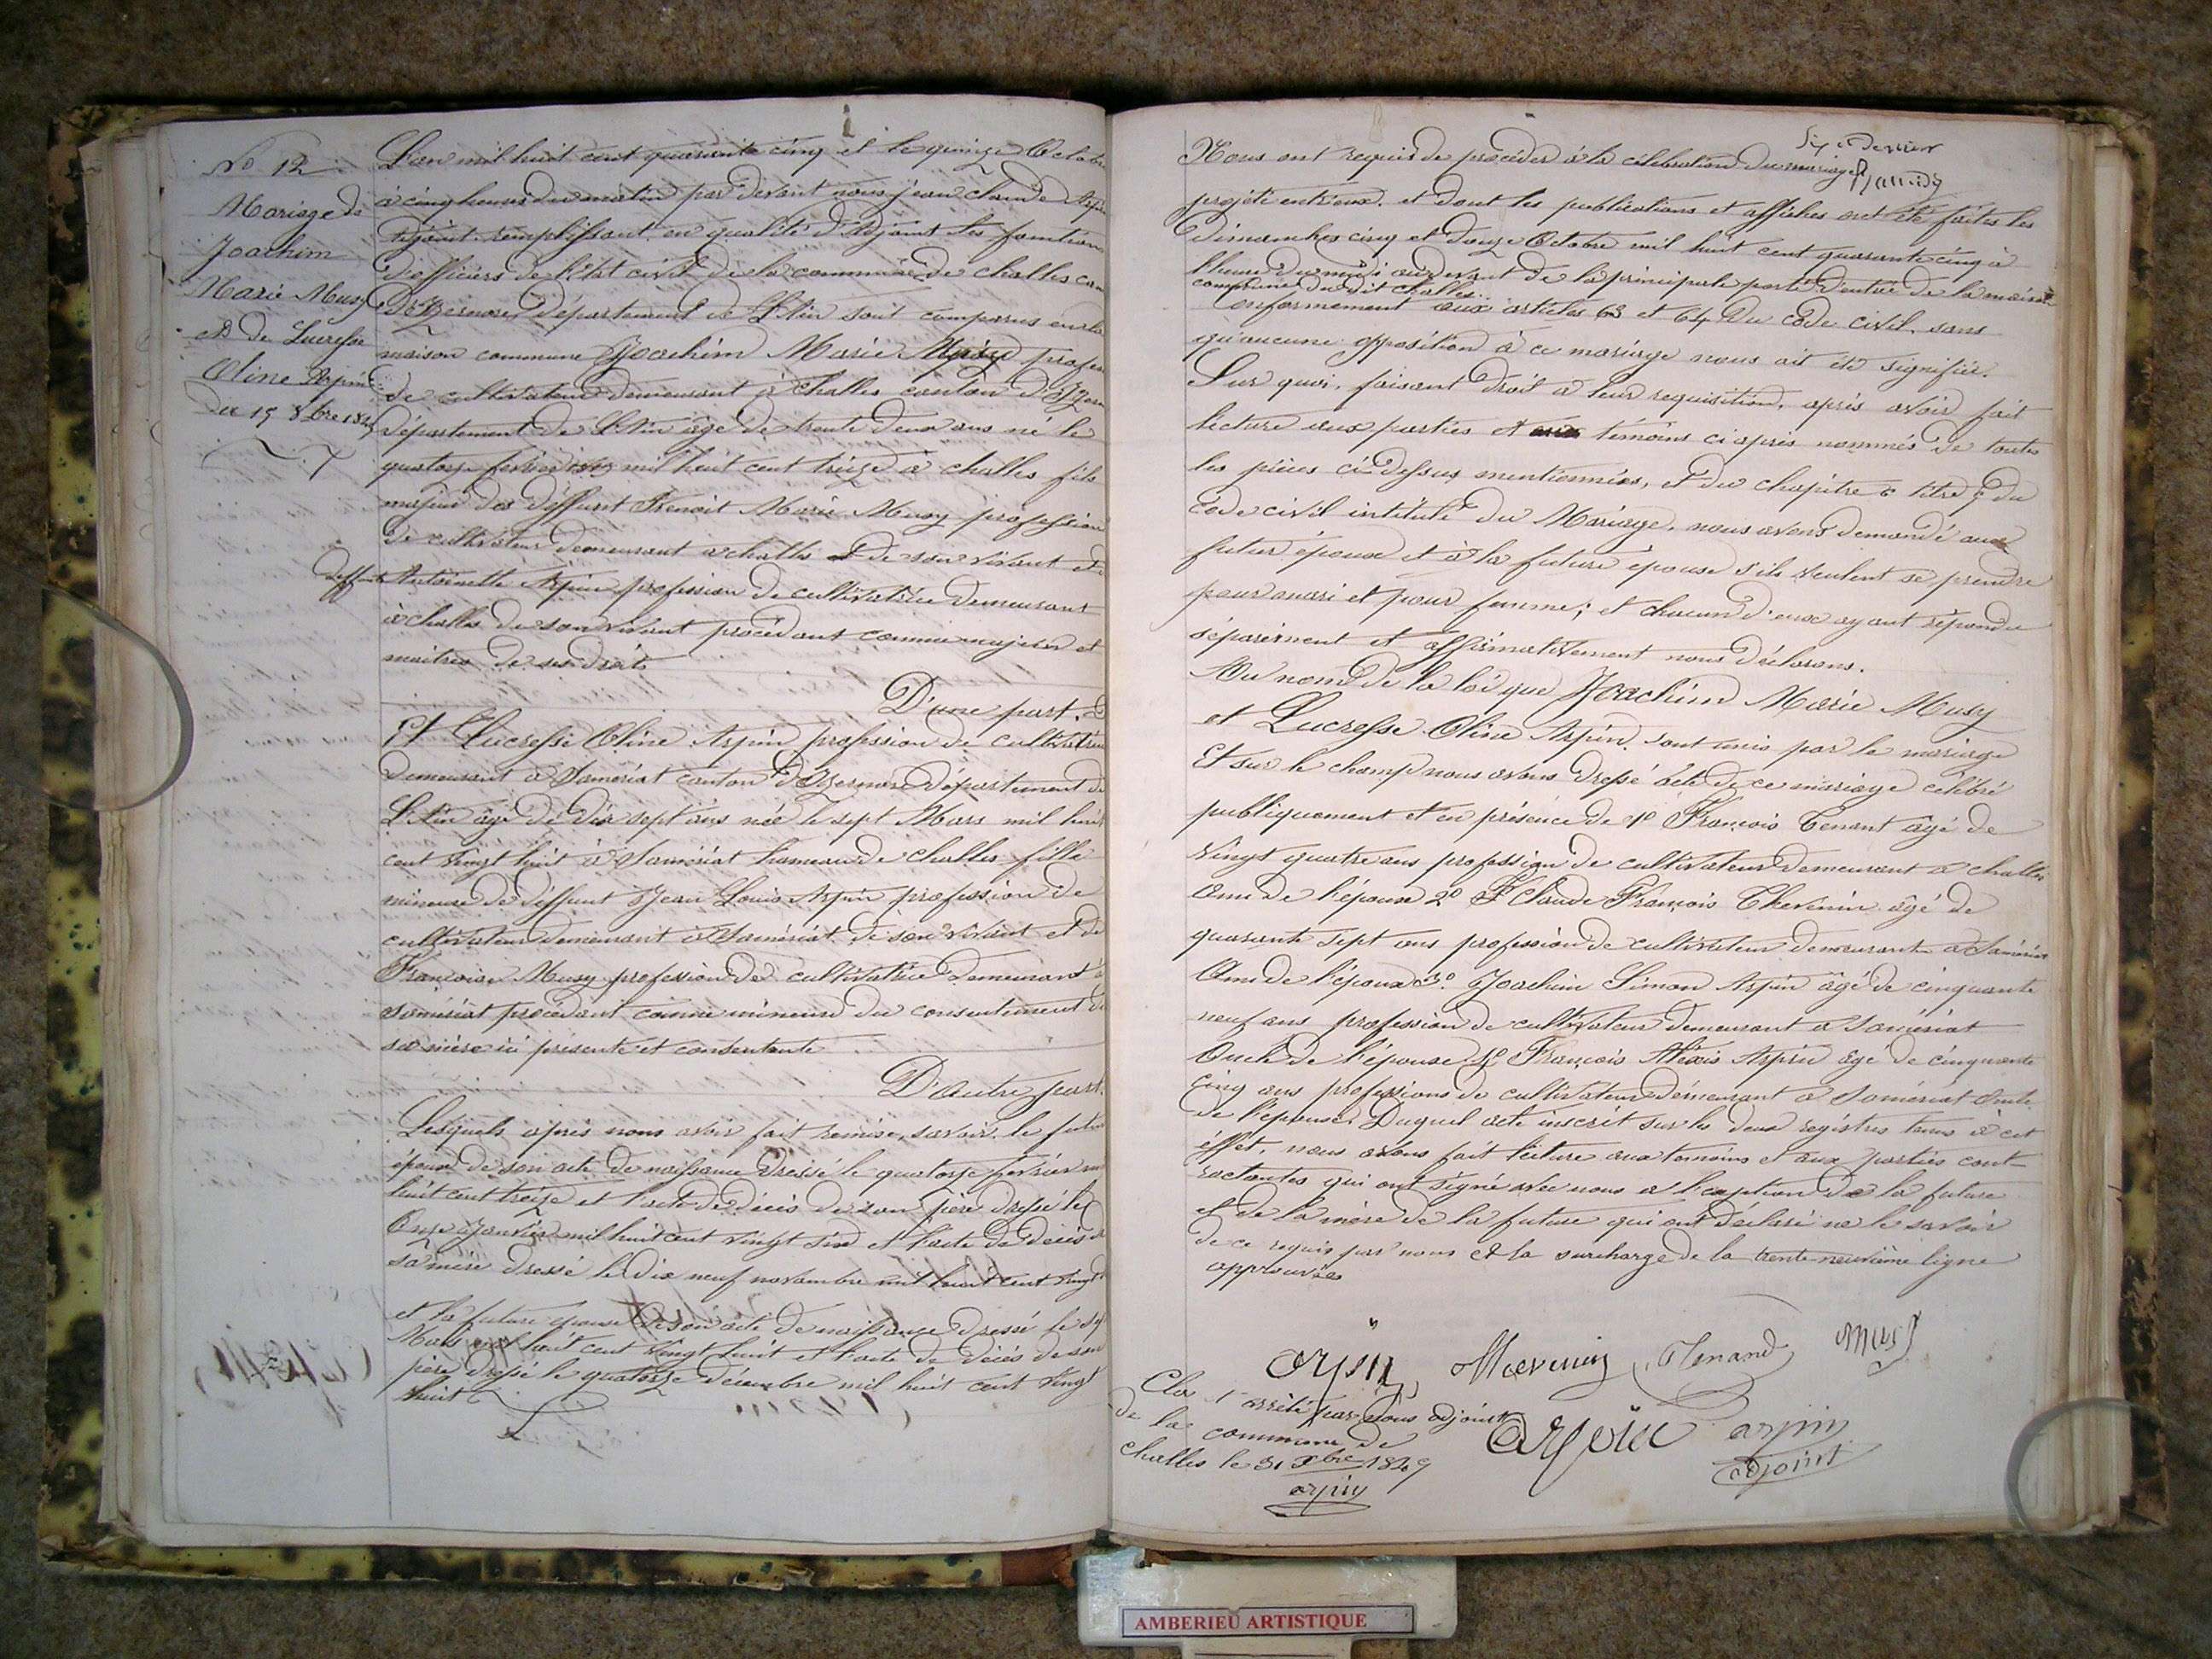 No 12
Mariage de
Joachim
Marie Musy
et de Lucresse
Oline Arpin
du 15 8bre 1845
L'an mil huit cent quarante cinq et le quinze Octobre
à cinq heures du matin par devant nous jean claude Arpin
adjoint remplissant en qualité d'Adjoint les fonctions
d'officiers de l'état civil de la commune de challes can
D'Izernore Département de L'Ain sont comparus en la
maison commune Joachim Marie Musy profess
de cultivateur demeurant à Challes canton d'Izern
Département de L'Ain âgé de trente deux ans né le
quatorze fevrier mil huit cent treize à challes fils
majeur des deffunt Benoit Marie Musy profession
de cultivateur demeurant a challes et de son vivant et de
deffunte Antoinette Arpin profession de cultivatrice demeurant
à challes de son vivant procédant comme majeur et
maitres de ses droits
D'une part,
Et Lucresse Oline Arpin profession de cultivatrice
Demeurant à Samériat canton d'Izernore Département de
L'Ain âgé de dix sept ans née le sept Mars mil huit
cent vingt huit à Samériat hameau de challes fille
mineure de deffunt Jean Louis Arpin profession de
cultivateur demeurant à Samériat de son vivant et de
Françoise Musy profession de cultivatrice demeurant à
samériat procédant comme mineure du consentement de
sa mère ici présente et consentante
D'autre part.
Lesquels après nous avoir fait remise, savoir, le futur
époux de son acte de naissance dressé le quatorze février mil
huit cent treize et l'acte de décès de son père dressé le
Onze Janvier mil huit cent vingt six et l'acte de décès de
sa mère dressé le dix neuf novembre mil huit cent vingt
et la future épouse de son acte de naissance dressé le sept
Mars mil huit cent vingt huit et l'acte de décès de son
père dressé le quatorze décembre mil huit cent vingt
huit
Nous ont requis de procéder à la célébration du mariage
projété entr'eux. et dont les publications et affiches ont été faites les
Dimanches cinq et douze Octobre mil huit cent quarante cinq à
l'heure de midi au devant de la principale porte d'entrée de la maison
commune du dit challes
conformement aux articles 63 et 64 du code civil. sans
qu'aucune opposition à ce mariage nous ait été signifiée.
Sur quoi, faisant droit à leur requisition, après avoir fait
lecture aux parties et aux témoins ci après nommés de toutes
les pièces ci-dessus mentionnées, et du chapitre 6 titre 5 du
code civil intitulé du Mariage, nous avons demandé aux
futur époux et à la future épouse s'ils veulent se prendre
pour mari et pour femme; et chacun d'eux ayant répondu
séparément et affirmativement nous déclarons.
Au nom de la loi que Joachim Marie Musy
et Lucresse Oline Arpin sont unis par le mariage
Et sur le champ nous avons dressé acte de ce mariage célébré
publiquement et en présence de 1o François Tenant âgé de
vingt quatre ans profession de cultivateur demeurant à challes
ami de l'épouse 2o Claude François Thevenin âgé de
quarante sept ans profession de cultivateur demeurant à Samériat
Ami de l'épouse 3o Joachim Simon Arpin âgé de cinquante
neuf ans profession de cultivateur demeurant à Samériat
Oncle de l'épouse François Alexis Arpin âgé de cinquante
cinq ans professions de cultivateur demeurant à Samériat Oncle
de l'épouse. Duquel acte inscrit sur les deux régistres tenus à cet
éffet, nous avons fait lecture aux temoins et aux parties cont-
ractantes qui ont signé avec nous a l'exeption de la future
et de la mère de la future qui ont déclaré ne le savoir
de ce requis par nous et la surcharge de la trente-neuvième ligne
approuvée
arpin Thevenin Tenand musy
arpin arpin
adjoint
Clos et arrêté par nous adjoint
de la commune de
challes le 31 Xbre 1845
arpin
AMBERIEU ARTISTIQUE